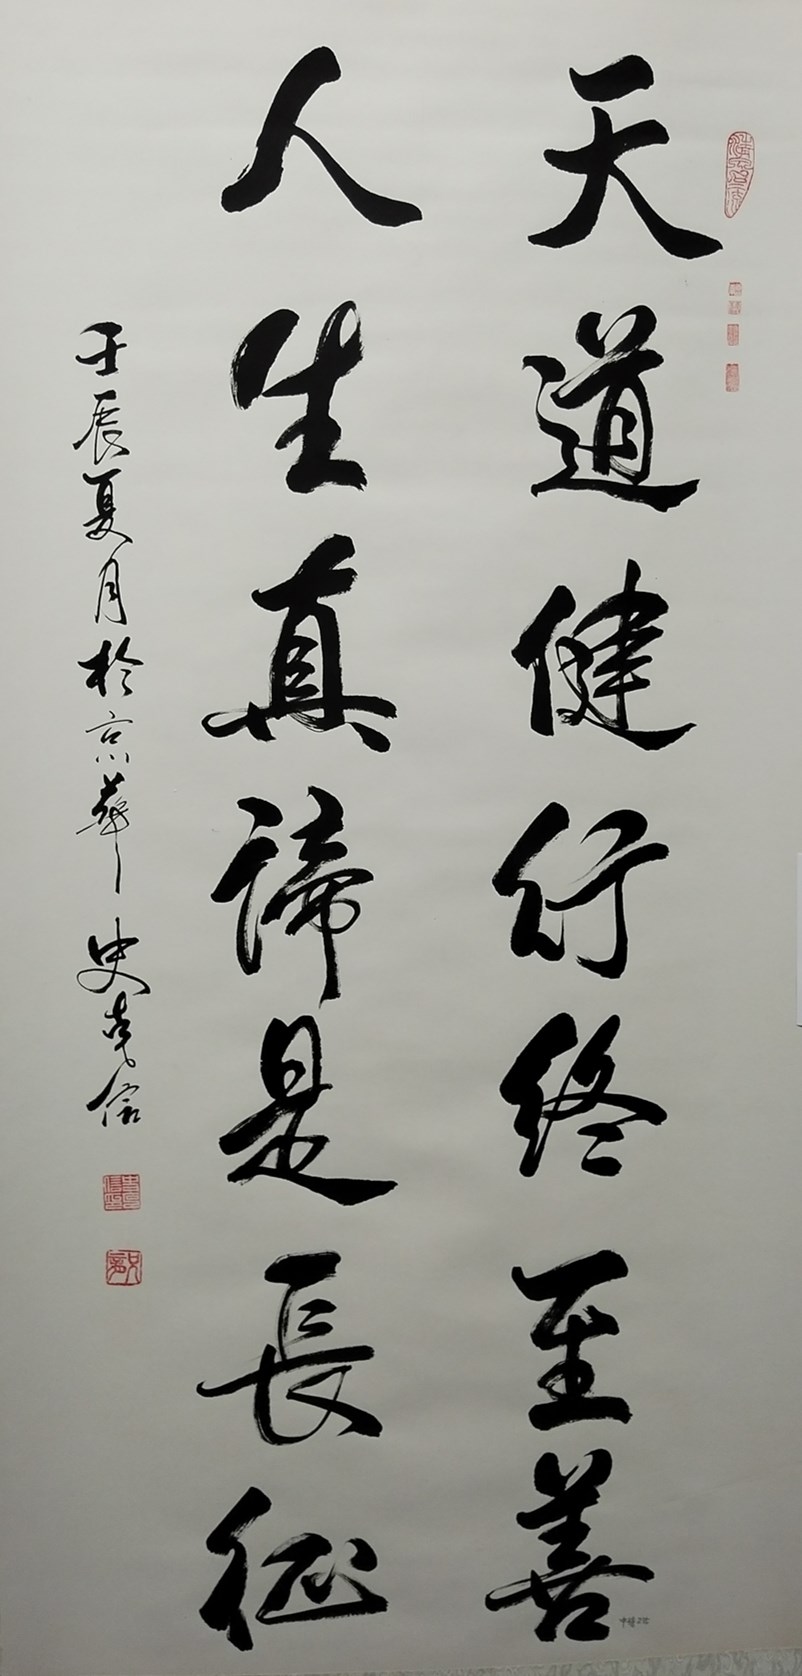 天道健行終至善
人生真諦是長征
壬辰夏月於京華史克信